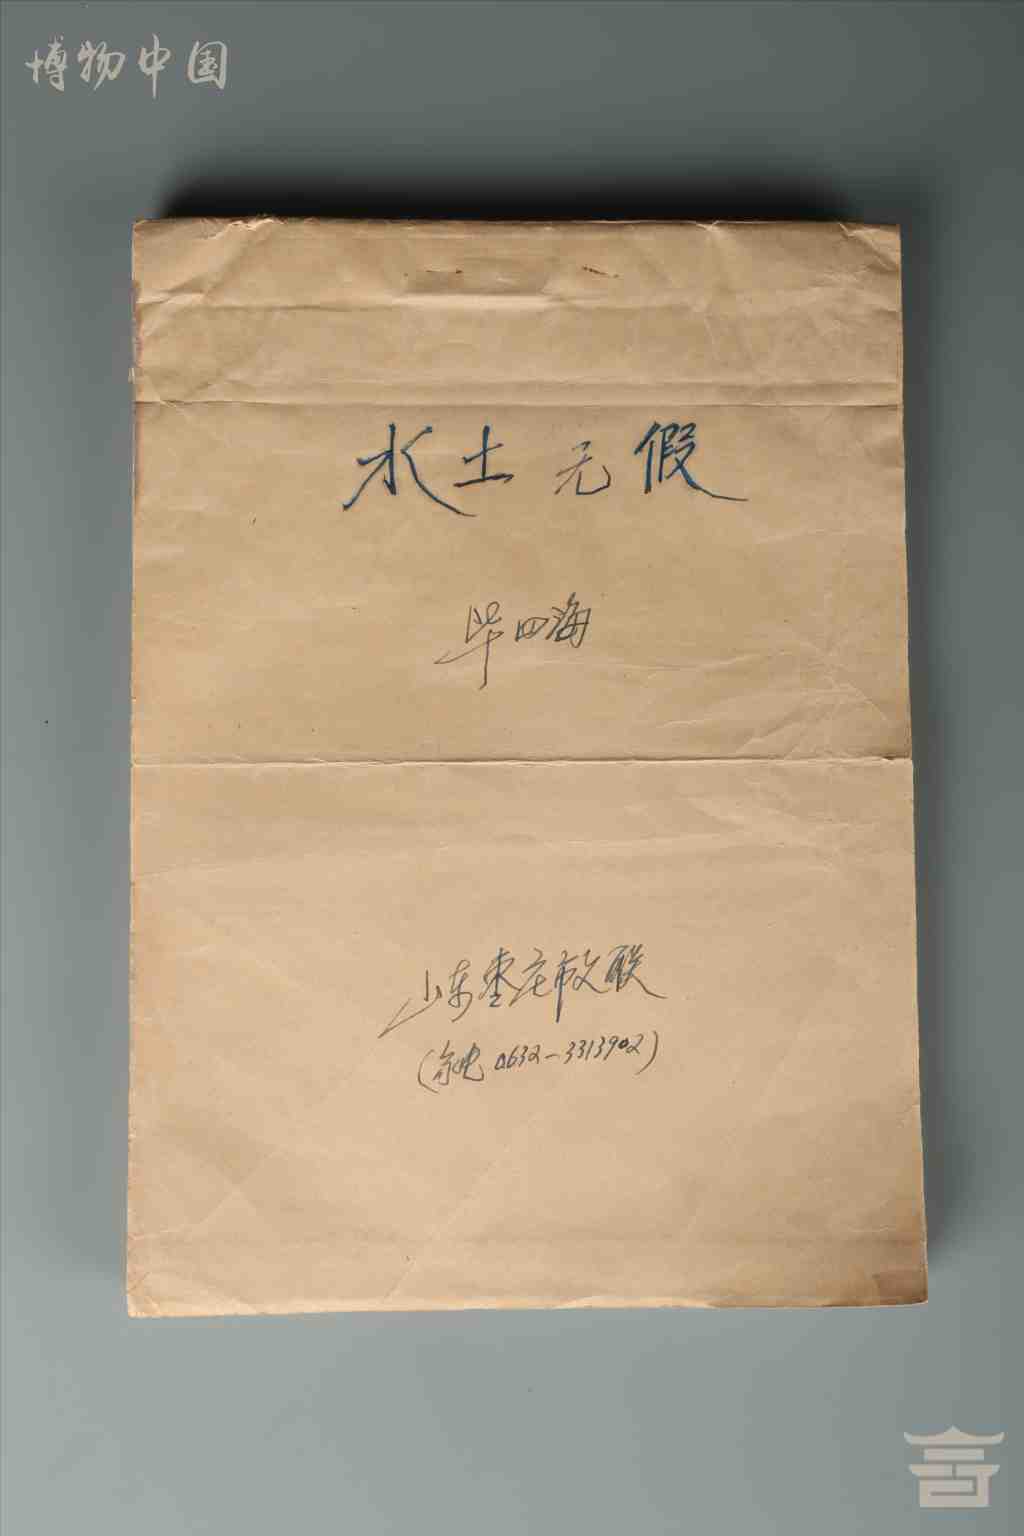 博物中国
水土无假
毕四海
山东枣庄市文联
(家电 0632-3313902)